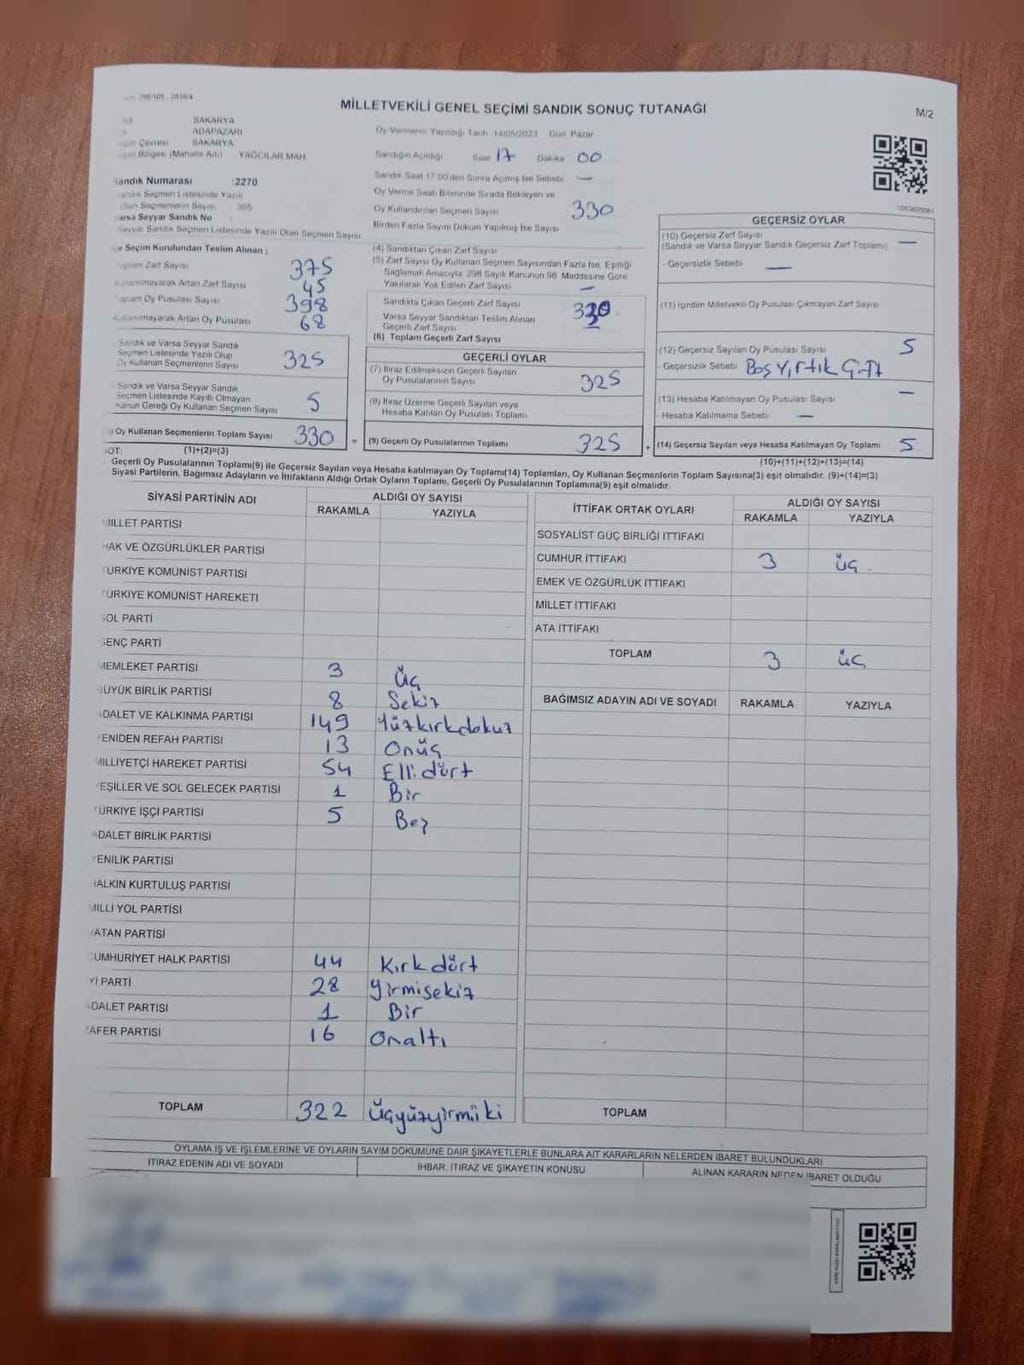 MİLLETVEKİLİ GENEL SEÇİMİ SANDIK SONUÇ TUTANAĞI
M/2
SAKARYA
ADAPAZARI
SAKARYA
Bölgesi (Mahalle Adı) YAĞCILAR MAH.
Sandık Numarası :2270
Seçmen Listesinde Yazılı
Olan Seçmenlerin Sayısı 365
Varsa Seyyar Sandık No
Seyyar Sandık Seçmen Listesinde Yazılı Olan Seçmen Sayısı
Seçim Kurulundan Teslim Alınan ;
Toplam Zarf Sayısı 375
Kullanılmayarak Artan Zarf Sayısı 45
Toplam Oy Pusulası Sayısı 398
Kullanılmayarak Artan Oy Pusulası 68
Sandık ve Varsa Seyyar Sandık
Seçmen Listesinde Yazılı Olup
Oy Kullanan Seçmenlerin Sayısı 325
Sandık ve Varsa Seyyar Sandık
Seçmen Listesinde Kayıtlı Olmayan
Kanun Gereği Oy Kullanan Seçmen Sayısı 5
Oy Kullanan Seçmenlerin Toplam Sayısı 330 =
(1)+(2)=(3)
Oy Vermenin Yapıldığı Tarih 14/05/2023 Gün Pazar
Sandığın Açıldığı Saat 17 Dakika 00
Sandık Saat 17:00'den Sonra Açılmış İse Sebebi —
Oy Verme Saati Bitiminde Sırada Bekleyen ve
Oy Kullandırılan Seçmen Sayısı 330
Birden Fazla Sayım Döküm Yapılmış İse Sayısı
(4) Sandıktan Çıkan Zarf Sayısı
(5) Zarf Sayısı Oy Kullanan Seçmen Sayısından Fazla İse, Eşitliği
Sağlamak Amacıyla, 298 Sayılı Kanunun 98. Maddesine Göre
Yakılarak Yok Edilen Zarf Sayısı —
Sandıkta Çıkan Geçerli Zarf Sayısı 330
Varsa Seyyar Sandıktan Teslim Alınan
Geçerli Zarf Sayısı —
(6) Toplam Geçerli Zarf Sayısı
GEÇERLİ OYLAR
(7) İtiraz Edilmeksizin Geçerli Sayılan
Oy Pusulalarının Sayısı 325
(8) İtiraz Üzerine Geçerli Sayılan veya
Hesaba Katılan Oy Pusulası Toplamı
(9) Geçerli Oy Pusulalarının Toplamı 325 +
GEÇERSİZ OYLAR
(10) Geçersiz Zarf Sayısı —
(Sandık ve Varsa Seyyar Sandık Geçersiz Zarf Toplamı)
- Geçersizlik Sebebi —
(11) İçinden Milletvekili Oy Pusulası Çıkmayan Zarf Sayısı
(12) Geçersiz Sayılan Oy Pusulası Sayısı 5
- Geçersizlik Sebebi Boş Yırtık Çift
(13) Hesaba Katılmayan Oy Pusulası Sayısı —
- Hesaba Katılmama Sebebi —
(14) Geçersiz Sayılan veya Hesaba Katılmayan Oy Toplamı 5
(10)+(11)+(12)+(13)=(14)
Geçerli Oy Pusulalarının Toplamı(9) ile Geçersiz Sayılan veya Hesaba katılmayan Oy Toplamı(14) Toplamları, Oy Kullanan Seçmenlerin Toplam Sayısına(3) eşit olmalıdır. (9)+(14)=(3)
Siyasi Partilerin, Bağımsız Adayların ve İttifakların Aldığı Ortak Oyların Toplamı, Geçerli Oy Pusulalarının Toplamına(9) eşit olmalıdır.
SİYASİ PARTİNİN ADI ALDIĞI OY SAYISI
RAKAMLA YAZIYLA
MİLLET PARTİSİ
HAK VE ÖZGÜRLÜKLER PARTİSİ
TÜRKİYE KOMÜNİST PARTİSİ
TÜRKİYE KOMÜNİST HAREKETİ
SOL PARTİ
GENÇ PARTİ
MEMLEKET PARTİSİ 3 Üç
BÜYÜK BİRLİK PARTİSİ 8 Sekiz
ADALET VE KALKINMA PARTİSİ 149 Yüzkırkdokuz
YENİDEN REFAH PARTİSİ 13 Onüç
MİLLİYETÇİ HAREKET PARTİSİ 54 Elli dört
YEŞİLLER VE SOL GELECEK PARTİSİ 1 Bir
TÜRKİYE İŞÇİ PARTİSİ 5 Beş
ADALET BİRLİK PARTİSİ
YENİLİK PARTİSİ
HALKIN KURTULUŞ PARTİSİ
MİLLİ YOL PARTİSİ
VATAN PARTİSİ
CUMHURİYET HALK PARTİSİ 44 Kırk dört
İYİ PARTİ 28 Yirmisekiz
ADALET PARTİSİ 1 Bir
ZAFER PARTİSİ 16 Onaltı
TOPLAM 322 Üçyüzyirmiiki
İTTİFAK ORTAK OYLARI ALDIĞI OY SAYISI
RAKAMLA YAZIYLA
SOSYALİST GÜÇ BİRLİĞİ İTTİFAKI
CUMHUR İTTİFAKI 3 üç
EMEK VE ÖZGÜRLÜK İTTİFAKI
MİLLET İTTİFAKI
ATA İTTİFAKI
TOPLAM 3 üç
BAĞIMSIZ ADAYIN ADI VE SOYADI RAKAMLA YAZIYLA
TOPLAM
OYLAMA İŞ VE İŞLEMLERİNE VE OYLARIN SAYIM DÖKÜMÜNE DAİR ŞİKAYETLERLE BUNLARA AİT KARARLARIN NELERDEN İBARET BULUNDUKLARI
İTİRAZ EDENİN ADI VE SOYADI İHBAR, İTİRAZ VE ŞİKAYETİN KONUSU ALINAN KARARIN NEDEN İBARET OLDUĞU